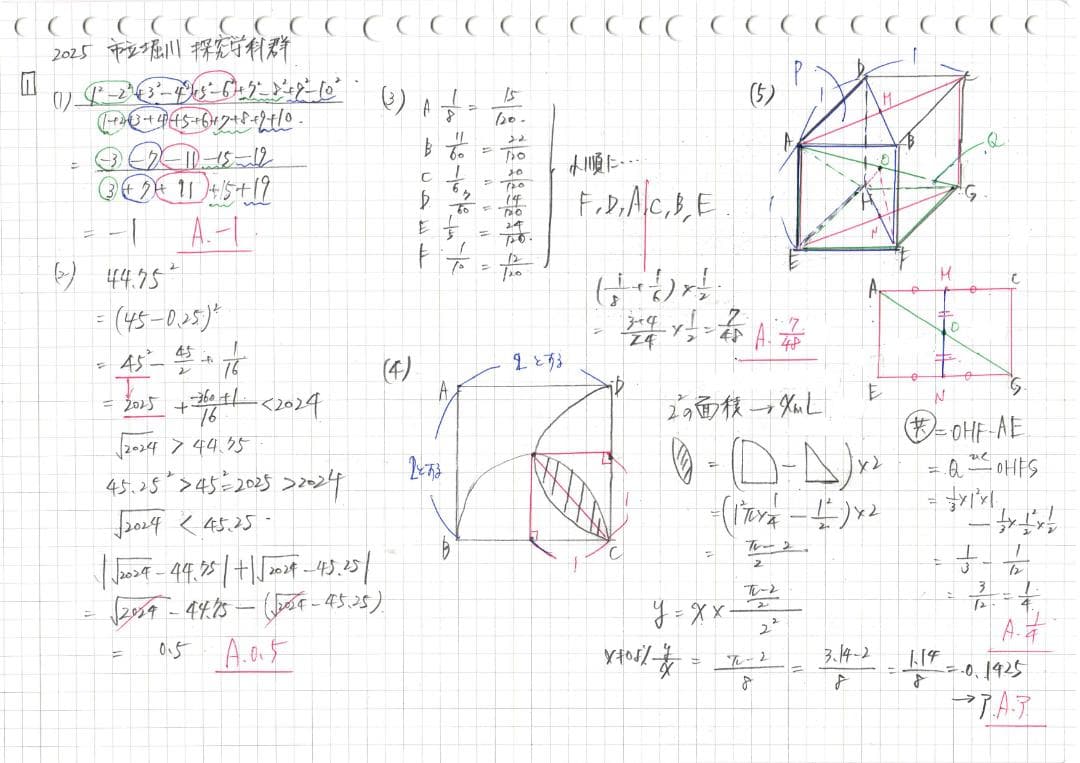 2025 市立堀川 探究学科群
1
(1) 1²-2²+3²-4²+5²-6²+7²-8²+9²-10²
1+2+3+4+5+6+7+8+9+10
= -3-7-11-15-19
3+7+11+15+19
= -1 A. -1
(2) 44.75²
= (45-0.25)²
= 45² - 45/2 + 1/16
= 2025 + -360+1/16 < 2024
√2024 > 44.75
45.25² > 45² = 2025 > 2024
√2024 < 45.25
|√2024 - 44.75| + |√2024 - 45.25|
= √2024 - 44.75 - (√2024 - 45.25)
= 0.5 A. 0.5
(3) A 1/8 = 15/120
B 11/60 = 22/120
C 1/6 = 20/120
D 7/60 = 14/120
E 1/5 = 24/120
F 1/10 = 12/120
小順に…
F, D, A, C, B, E
(1/8 + 1/6) × 1/2
= 3+4/24 × 1/2 = 7/48 A. 7/48
(4)
2とする
A D
2とする
B C
1
1
2²の面積 → x mL
= ( - ) ×2
= (1²π×1/4 - 1²/2) ×2
= π-2/2
y = x × π-2/2/2²
y/x = π-2/8 = 3.14-2/8 = 1.14/8 = 0.1425
→ ア. A. ア
(5)
P D 1 C
M
A B Q
O
1 H G
N
E F
A M C
O
E N G
共 = OHF-AE
= Q - OHFG
= 1/3×1²×1 - 1/3×1²/2×1/2
= 1/3 - 1/12
= 3/12 = 1/4
A. 1/4